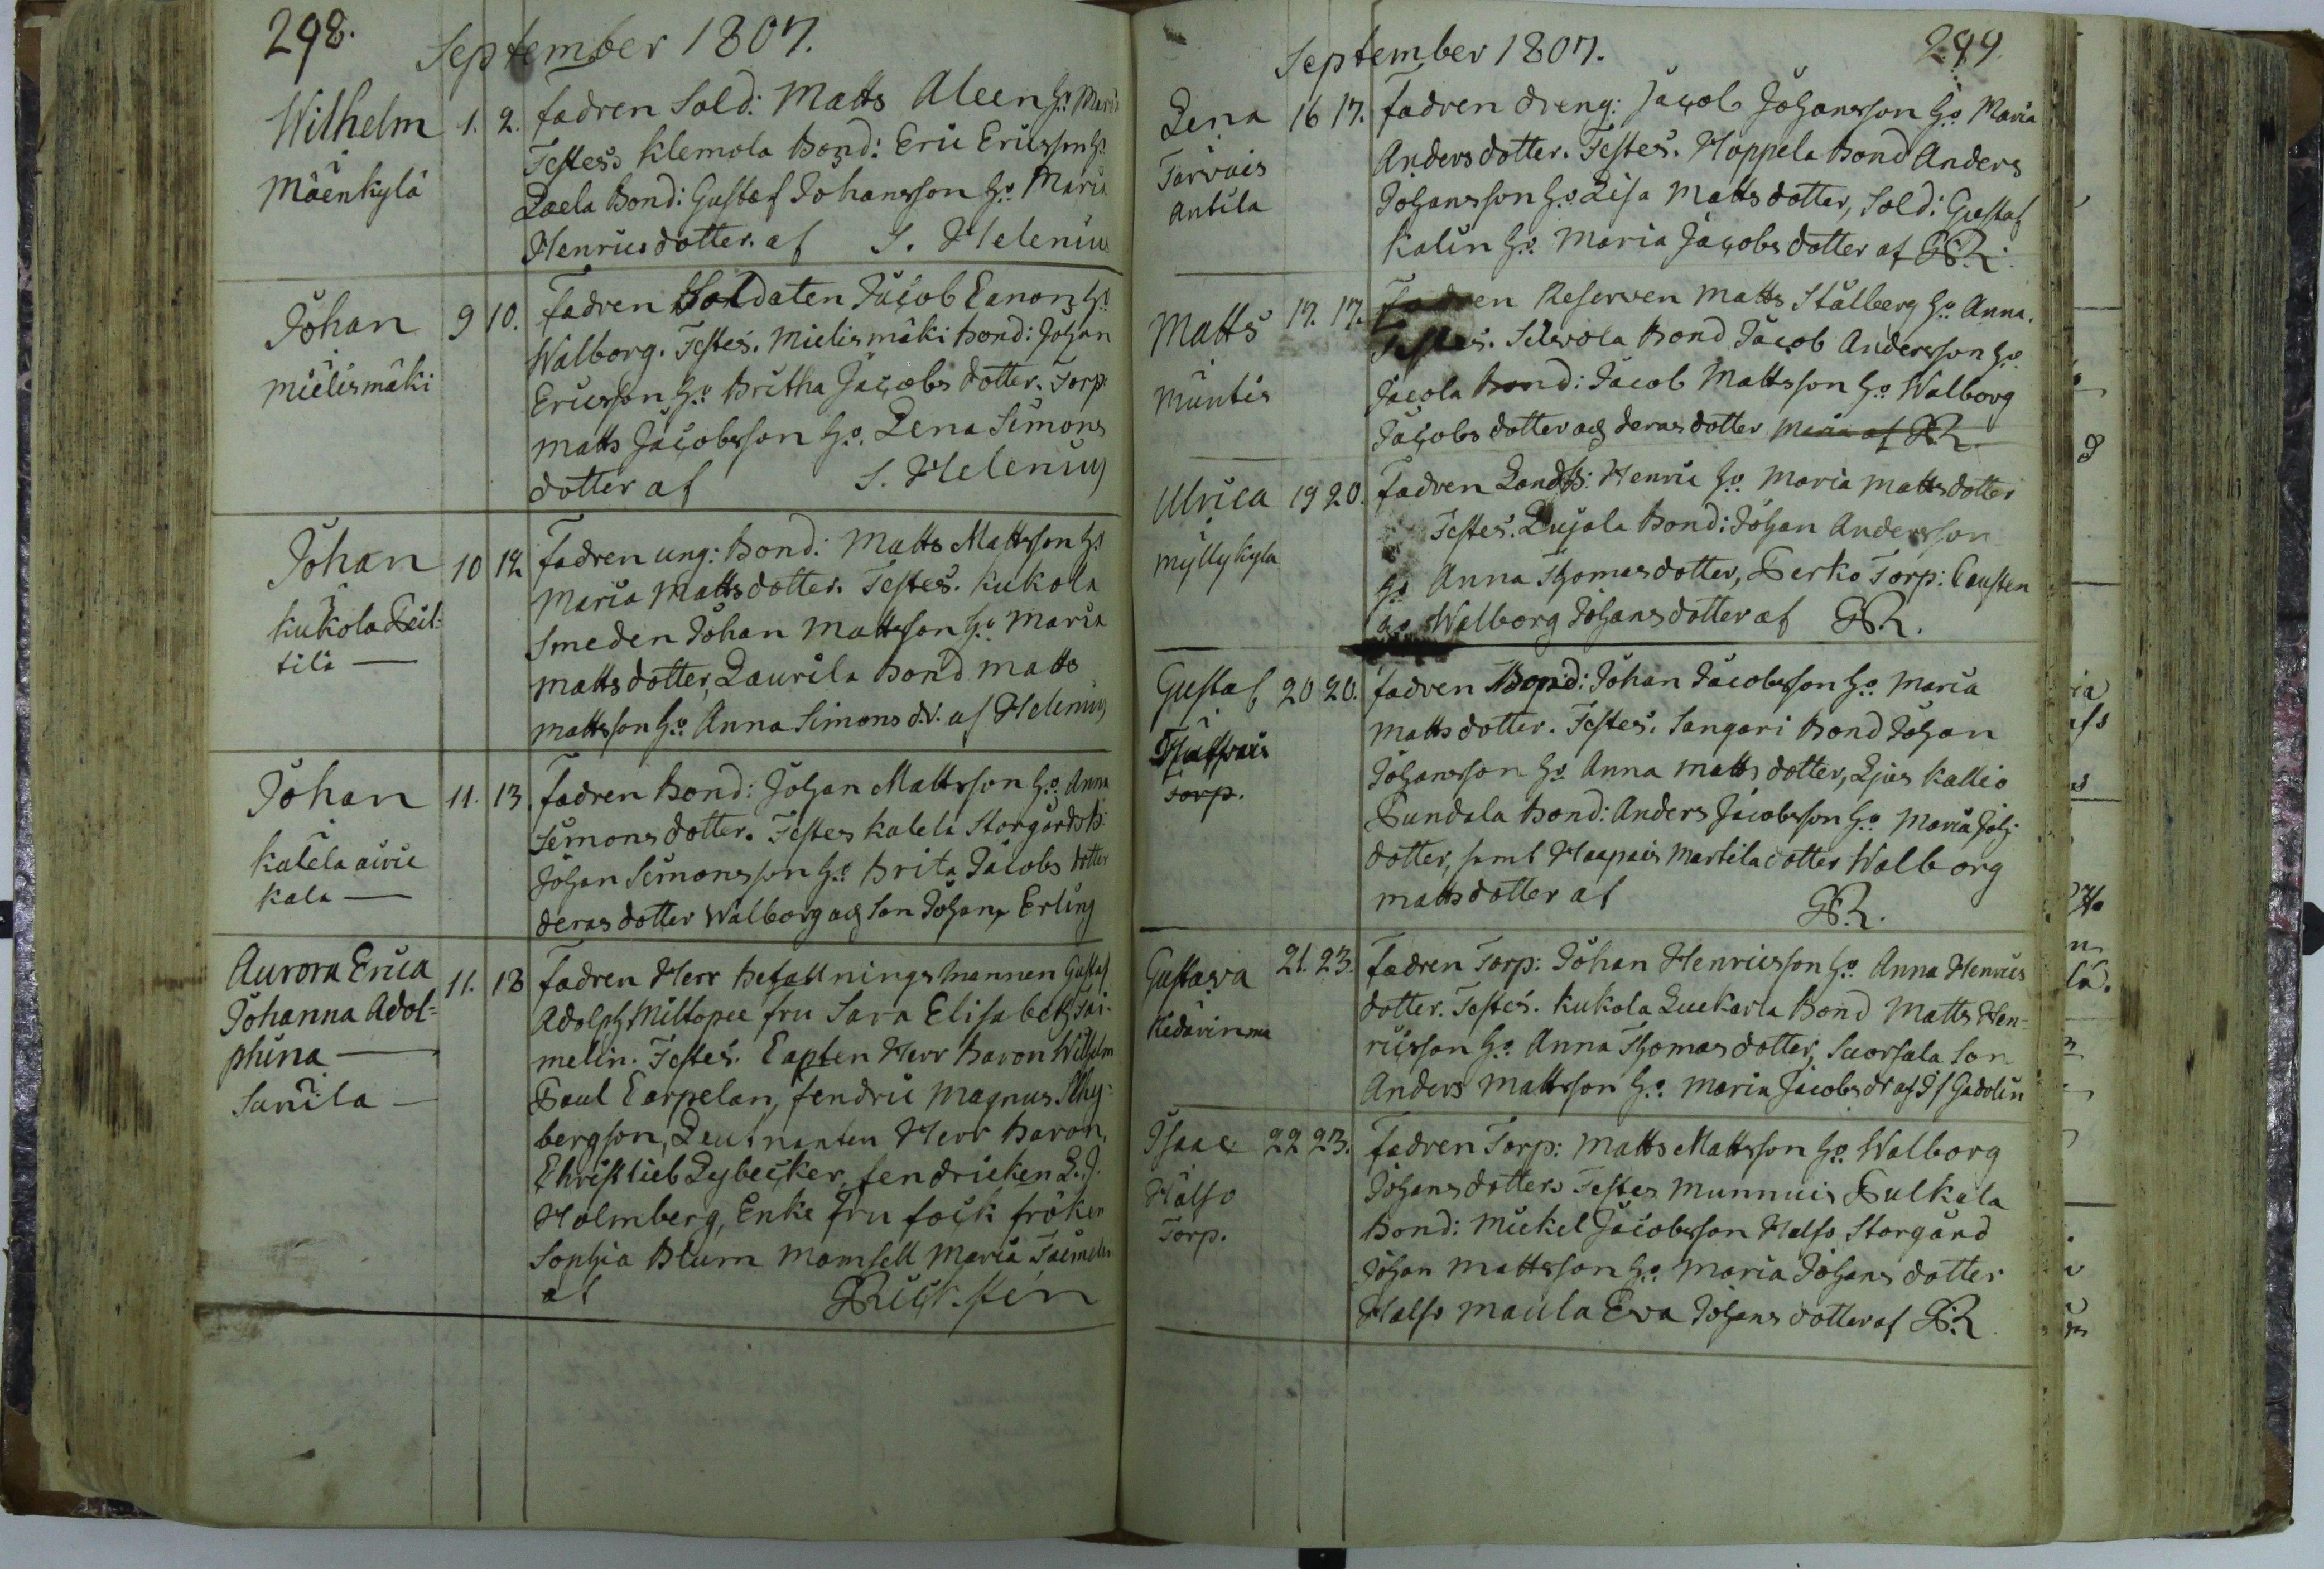 298.
September 1807.
Wilhelm 1. 2. fadren Sold: Matts Aleen h:o Maria
Mäenkylä
Testes: Klemola Bond: Eric Ericsson h:o
Laela Bond: Gustaf Johansson h:o Maria
Henricsdotter. af S. Helenius
Johan 9 10. fadren Soldaten Jacob Canon h:o
Mielismäki
Walborg. Testes. Mielismäki Bond: Johan
Ericsson h:o Britha Jacobs dotter. Torp:
Matts Jacobsson h:o Lena Simons
dotter af S. Helenius
Johan 10 12 Fadren ung: Bond: Matts Mattsson h:o
Kukola
tilä —
Maria Mattsdotter. Testes. Kukola
Smeden Johan Mattsson h:o Maria
Mattsdotter, Laurila Bond Matts
Mattsson h:o Anna Simons d:r. af Helenius
Johan 11. 13. fadren Bond: Johan Mattsson h:o Anna
Kalela
kala —
Simonsdotter. Testes Kalela Storgårds b:
Johan Simonsson h:o Brita Jacobs dotter
deras dotter Walborg och Son Johan, Erling
Aurora Erica
Johanna Adol=
phina —
Sunila —
11. 13 fadren Herr Befallningsmannen Gustaf
Adolph Miltopee fru Sara Elisabeth Tai-
melin. Testes. Capten Herr Baron Wilhelm
Paul Carpelan, fendric Magnus
bergson, Leutnanten Herr Baron,
Christlieb Lybecker, fendricken L. J.
Holmberg, Enke fru fock fröken
Sophia Blum Mamsell Maria Taimelin
af
September 1807.
299.
Lena 16 17. fadren dreng: Jacob Johansson h:o Maria
Tarvais
Antila
Andersdotter. Testes. Hoppela Bond Anders
Johansson h:o Lisa Mattsdotter, Sold: Gustaf
Kalin h:o Maria Jacobsdotter af GR.
Matts 17. 17. Fadren Reserven Matts Stålberg h:o Anna.
Muntis
Testes. Bond Jacob Andersson h:o
Jacola Bond: Jacob Mattsson h:o Walborg
Jacobsdotter och deras dotter Maria af GR.
Ulrica 19 20. fadren Henric h:o Maria Mattsdotter
Myllykylä
Testes. Lujala Bond: Johan Andersson
h:o Anna Thomasdotter, Perko Torp: Causten
h:o Walborg Johansdotter af GR.
Gustaf 20 20. fadren Bond: Johan Jacobsson h:o Maria
Torp.
Mattsdotter. Testes. Sangari Bond Johan
Johansson h:o Anna Mattsdotter, Kallio
Pundala Bond: Anders Jacobsson h:o Maria Joh:
dotter, samt Haapais Martila dotter Walborg
Mattsdotter af GR.
Gustava 21. 23. fadren Torp: Johan Henricsson h:o Anna Henrics
Kedävirma
dotter. Testes. Kukola Bond Matts Hen=
ricsson h:o Anna Thomasdotter, Suorsala Son
Anders Mattsson h:o Maria Jacobs dr af Gadolin
Isaac 22 23. fadren Torp: Matts Mattsson h:o Walborg
Halso
Torp.
Johansdotter. Testes Munnuis Pulkala
Bond: Mickel Jacobsson Halso Storgård
Johan Mattsson h:o Maria Johansdotter
Halso Maula Eva Johansdotter af GR